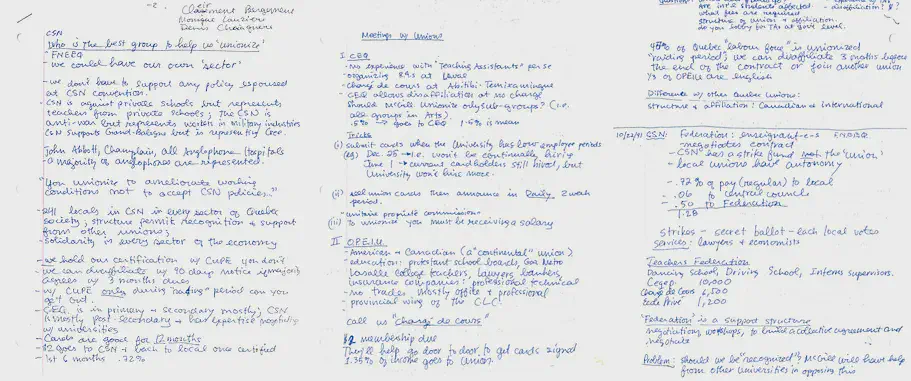 -2-
Clairmont Bergemans
Monique Lauzière
Denis Choinière
CSN
Who is the best group to help us 'unionize'
"FNEEQ"
- we could have our own 'sector'
- we don't have to support any policy espoused
at CSN convention.
- CSN is against private schools but represents
teachers from private schools; The CSN is
anti-war but represents workers in military industries
CSN supports Grand-Baleine but is representing Cree.
John Abbott, Champlain, all Anglophone Hospitals
- a majority of anglophones are represented.
"You unionize to ameliorate working
conditions (not to accept CSN policies."
- 2411 locals in CSN in every sector of Quebec
society; structure permit recognition & support
from other unions;
- Solidarity in every sector of the economy
- we hold our certification w/ CUPE you don't
- we can disaffiliate w/ 90 days notice if majority
agrees w/ 3 months dues
- w/ CUPE only during "raiding" period can you
get out.
- CEQ is in primary & secondary mostly; CSN
is mostly post-secondary & has expertise negotiating
w/ universities
- Cards are good for 12 months
- $2 goes to CSN & back to local once certified
- 1st 6 months .72%
Meetings w/ Unions
I CEQ
- No experience with "Teaching Assistants" per se
- organizing RAs at Laval
- Chargé de cours at Abitibi-Temiscamingue
- CEQ allows disaffiliation at no charge
Should McGill Unionize only sub-groups? (i.e.
all groups in Arts).
.5% → goes to CEQ 1.5% is mean
Tricks
(i) submit cards when the University has low employee periods
(eg) Dec. 25 → i.e. won't be continually hiring
June 1 → current cardholders still hired, but
University won't hire more.
(ii) sell union cards then announce in Daily 2 week
period.
- unitaire propriété commission
(iii) To unionize you must be receiving a salary
II O.P.E.I.U.
- American & Canadian (a "continental" union)
- education: protestant school boards, Gaz Metro
Lasalle College teachers, lawyers, bankers,
insurance companies: professional technical
- no trades mostly office & professional
- provincial wing of the CLC.
call us "Chargé de cours"
$2 membership due
They'll help go door to door to get cards signed
1.35% of income goes to Union.
are int'l students affected - disaffiliation: $?
what fees are required
structure of union & affiliation
do you lobby for TAs at Gov't level.
45% of Quebec "labour force" is unionized
"raiding period", we can disaffiliate 3 months before
the end of the contract or join another union
⅓ of OPEIU are English
Difference w/ other Quebec Unions:
structure & affiliation: Canadian & International
10/22/91 CSN: Federation: enseignant-e-s FNEEQ
- negotiates contract
- CSN has a strike fund not the 'union'
- local unions have autonomy
- .72% of pay (regular) to local
- .06 to central councils
- .50 to Federation
1.28
strikes - secret ballot - each local votes
services: lawyers & economists
Teachers Federation
Dancing School, Driving School, Interns supervisors.
Cegep 10,000
Chargé de Cours 6,500
Ecole Privé 1,200
'Federation' is a support structure
negotiations, workshops, to build a collective agreement and
negotiate
Problem: should we be "recognized", McGill will have help
from other Universities in opposing this